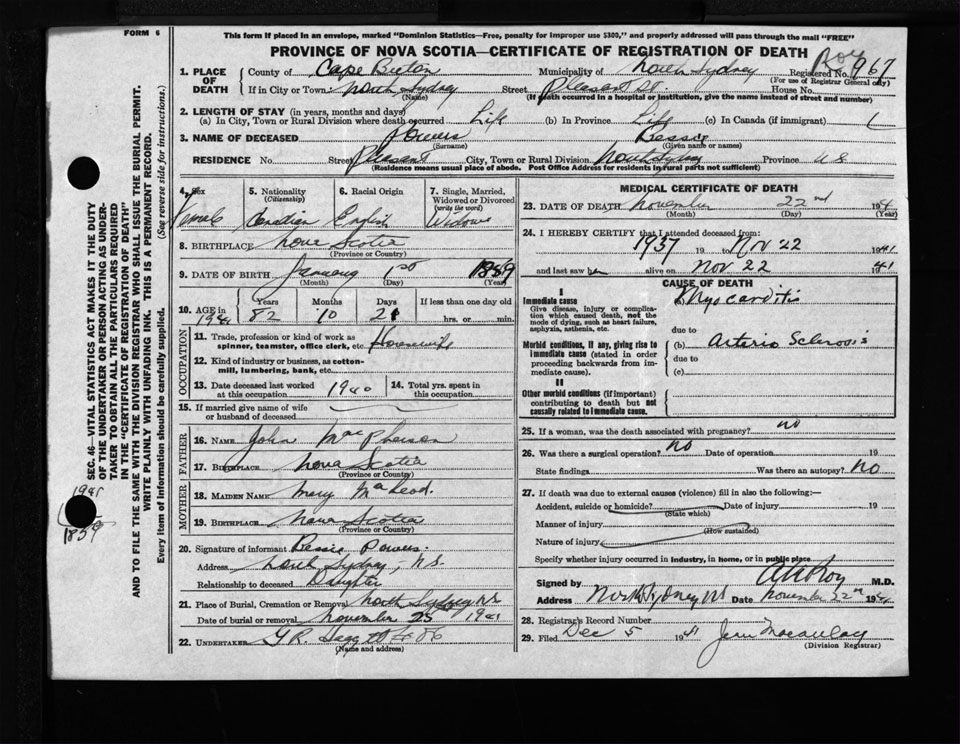 FORM 6
This form if placed in an envelope, marked "Dominion Statistics—Free, penalty for improper use $300," and properly addressed will pass through the mail "FREE"
PROVINCE OF NOVA SCOTIA—CERTIFICATE OF REGISTRATION OF DEATH
Roy
1. PLACE OF DEATH
County of Cape Breton Municipality of North Sydney Registered No. 967
(For use of Registrar General only)
If in City or Town: North Sydney Street Pleasant St. House No.
(Name) (If death occurred in a hospital or institution, give the name instead of street and number)
2. LENGTH OF STAY (in years, months and days)
(a) In City, Town or Rural Division where death occurred Life (b) In Province Life (c) In Canada (if immigrant)
3. NAME OF DECEASED Powers Bessie
(Surname) (Given name or names)
RESIDENCE No. Street Pleasant City, Town or Rural Division North Sydney Province NS
(Residence means usual place of abode. Post Office Address for residents in rural parts not sufficient)
4. Sex Female
5. Nationality (Citizenship) Canadian
6. Racial Origin English
7. Single, Married, Widowed or Divorced (write the word) Widow
8. BIRTHPLACE Nova Scotia
(Province or Country)
9. DATE OF BIRTH January 1st
(Month) (Day) (Year)
10. AGE Years Months Days If less than one day old
1941 82 10 21 hrs. or min.
OCCUPATION
11. Trade, profession or kind of work as spinner, teamster, office clerk, etc. Housewife
12. Kind of industry or business, as cotton-mill, lumbering, bank, etc.
13. Date deceased last worked at this occupation 1940
14. Total yrs. spent in this occupation
15. If married give name of wife or husband of deceased
FATHER
16. NAME John MacPherson
17. BIRTHPLACE Nova Scotia
(Province or Country)
MOTHER
18. MAIDEN NAME Mary MacLeod.
19. BIRTHPLACE Nova Scotia
(Province or Country)
20. Signature of informant Bessie Powers.
Address North Sydney, N.S.
Relationship to deceased Daughter
21. Place of Burial, Cremation or Removal North Sydney NS
Date of burial or removal November 25 1941
22. UNDERTAKER
(Name and address)
MEDICAL CERTIFICATE OF DEATH
23. DATE OF DEATH November 22nd 1941
(Month) (Day) (Year)
24. I HEREBY CERTIFY that I attended deceased from:
1937 19 to Nov 22 1941
and last saw her alive on Nov 22 1941
CAUSE OF DEATH
I
Immediate cause Myocarditis
Give disease, injury or complication which caused death, not the mode of dying, such as heart failure, asphyxia, asthenia, etc.
due to
Morbid conditions, if any, giving rise to immediate cause (stated in order proceeding backwards from immediate cause).
(b) Arterio Sclerosis
due to
(c)
II
Other morbid conditions (if important) contributing to death but not causally related to immediate cause.
25. If a woman, was the death associated with pregnancy? no
26. Was there a surgical operation? no Date of operation 19
State findings Was there an autopsy? no
27. If death was due to external causes (violence) fill in also the following:—
Accident, suicide or homicide? Date of injury 19
(State which)
Manner of injury
(How sustained)
Nature of injury
Specify whether injury occurred in industry, in home, or in public place
Signed by M.D.
Address North Sydney NS Date November 22nd 1941
28. Registrar's Record Number
29. Filed Dec 5 1941
(Division Registrar)
SEC. 46—VITAL STATISTICS ACT MAKES IT THE DUTY OF THE UNDERTAKER OR PERSON ACTING AS UNDERTAKER TO OBTAIN ALL THE PARTICULARS REQUIRED IN THE "CERTIFICATE OF REGISTRATION OF DEATH" AND TO FILE THE SAME WITH THE DIVISION REGISTRAR WHO SHALL ISSUE THE BURIAL PERMIT.
WRITE PLAINLY WITH UNFADING INK. THIS IS A PERMANENT RECORD.
Every item of information should be carefully supplied. (See reverse side for instructions.)
1941
1859